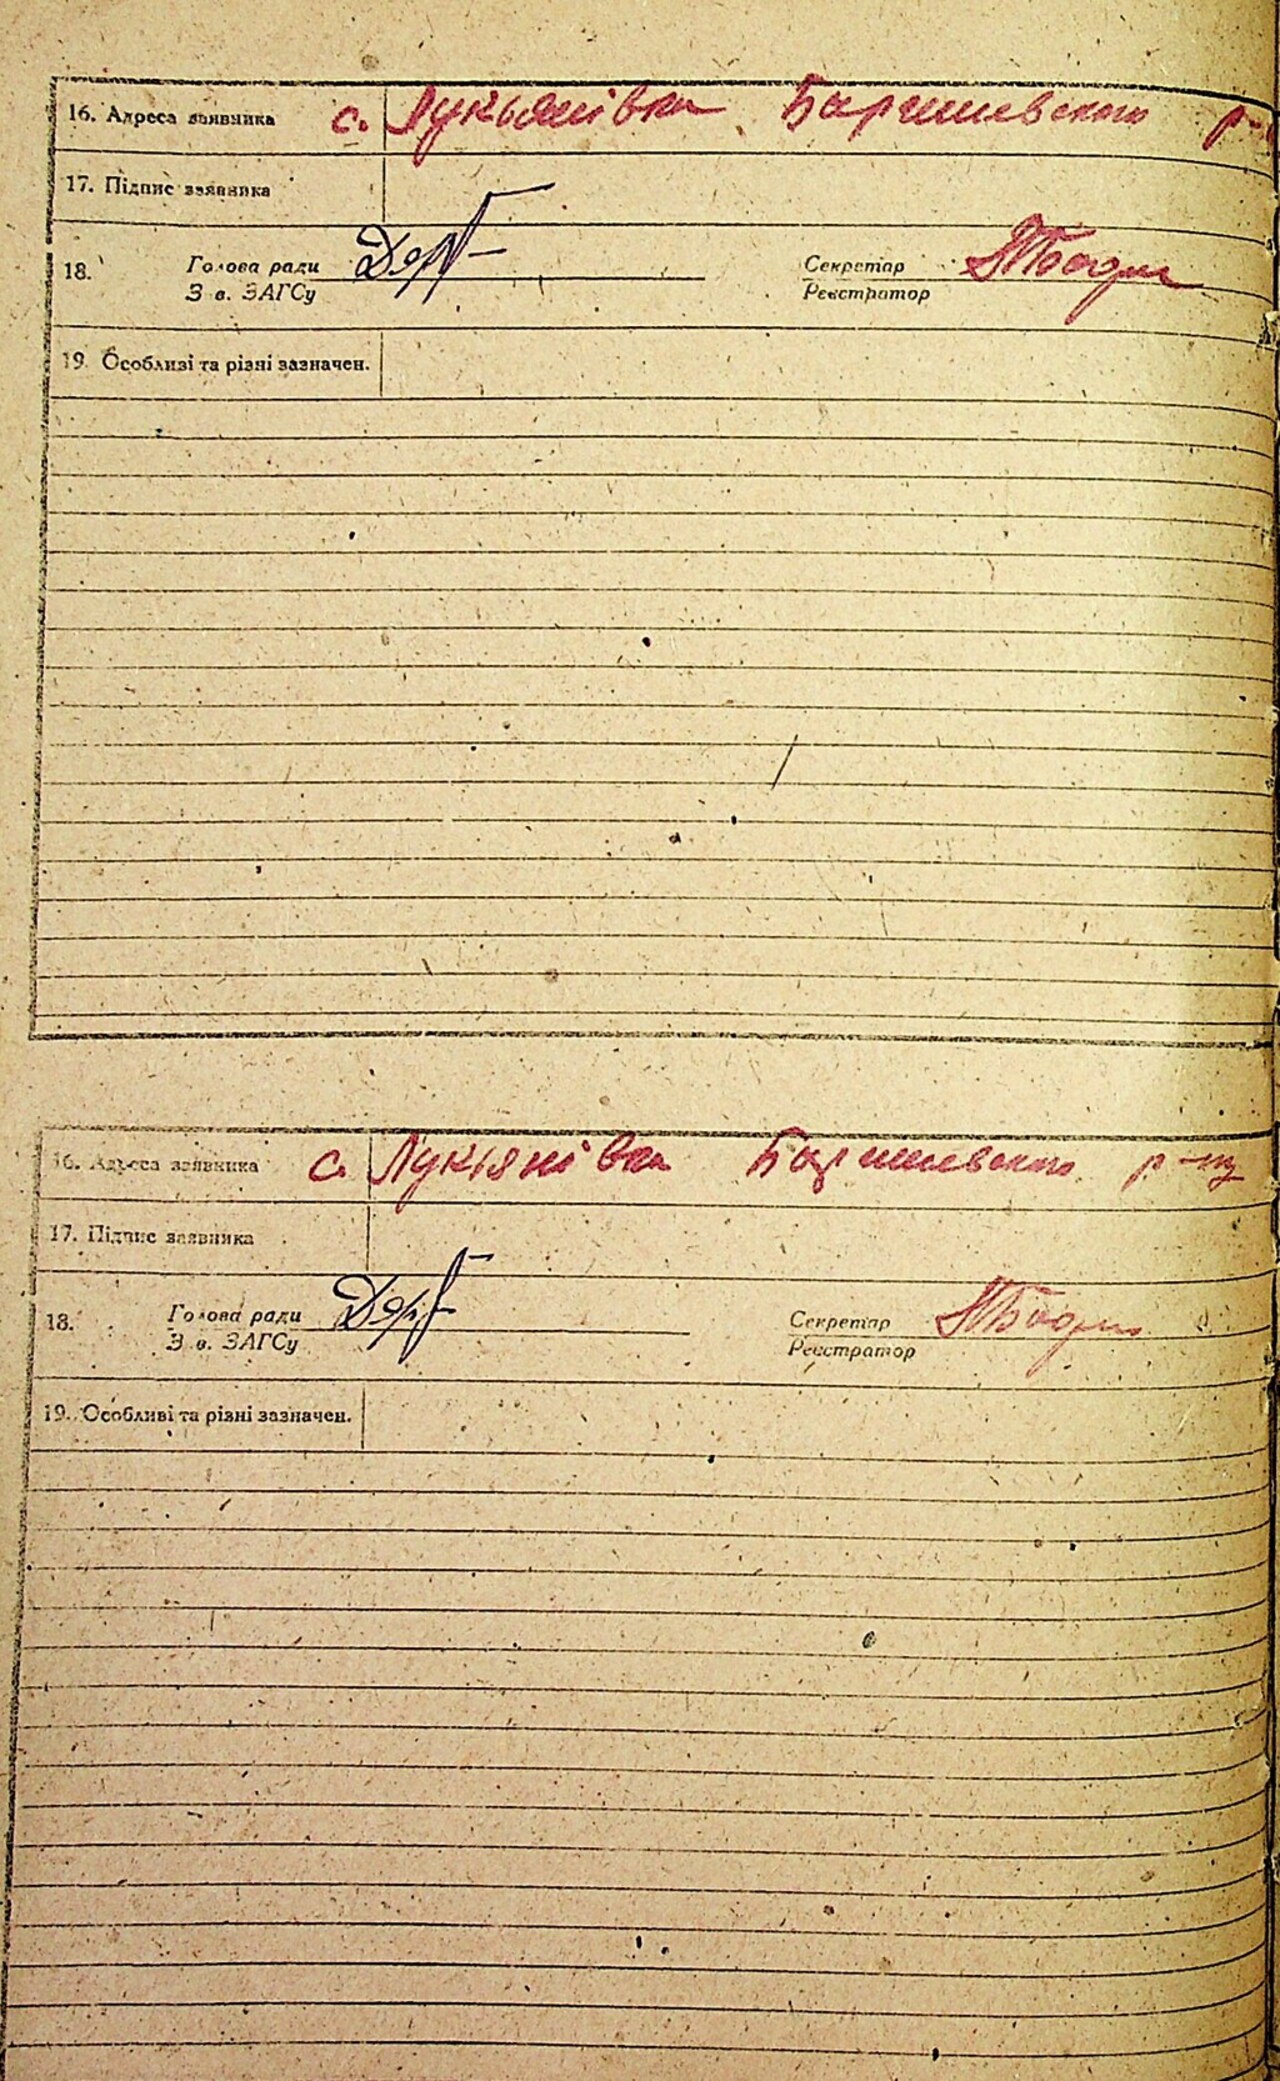 16. Адреса заявника с. Лукьянівка Баришевського р-
17. Підпис заявника
18. Голова ради Секретар
З в. ЗАГСу Реєстратор
19. Особливі та різні зазначен.
16. Адреса заявника с. Лукянівка Баришевського р-ну
17. Підпис заявника
18. Голова ради Секретар
З в. ЗАГСу Реєстратор
19. Особливі та різні зазначен.